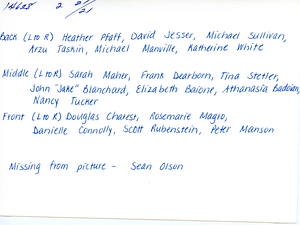 2 21/21
Back (L to R) Heather Pfaff, David Jesser, Michael Sullivan,
Arzu Taskin, Michael Manville, Katherine White
Middle (L to R) Sarah Maher, Frank Dearborn, Tina Stetler,
John "Jake" Blanchard, Elizabeth Baione, Athanasia Badoian,
Nancy Tucker
Front (L to R) Douglas Charest, Rosemarie Magro,
Danielle Connolly, Scott Rubenstein, Peter Manson
Missing from picture - Sean Olson